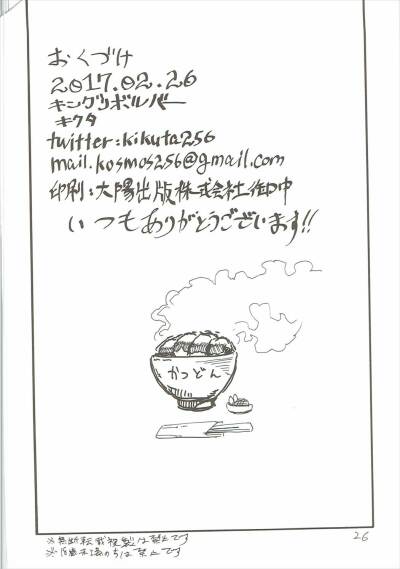 おくづけ
2017.02.26
キングリボルバー
キクタ
twitter:kikuta256
mail.kosmos256@gmail.com
印刷:大陽出版株式会社御中
いつもありがとうございます!!
かつどん
※無断転載複製は禁止です
は禁止です
26